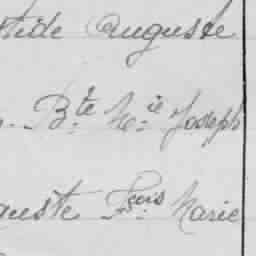 tide Auguste
. Bte Mie Joseph
guste Fois Marie